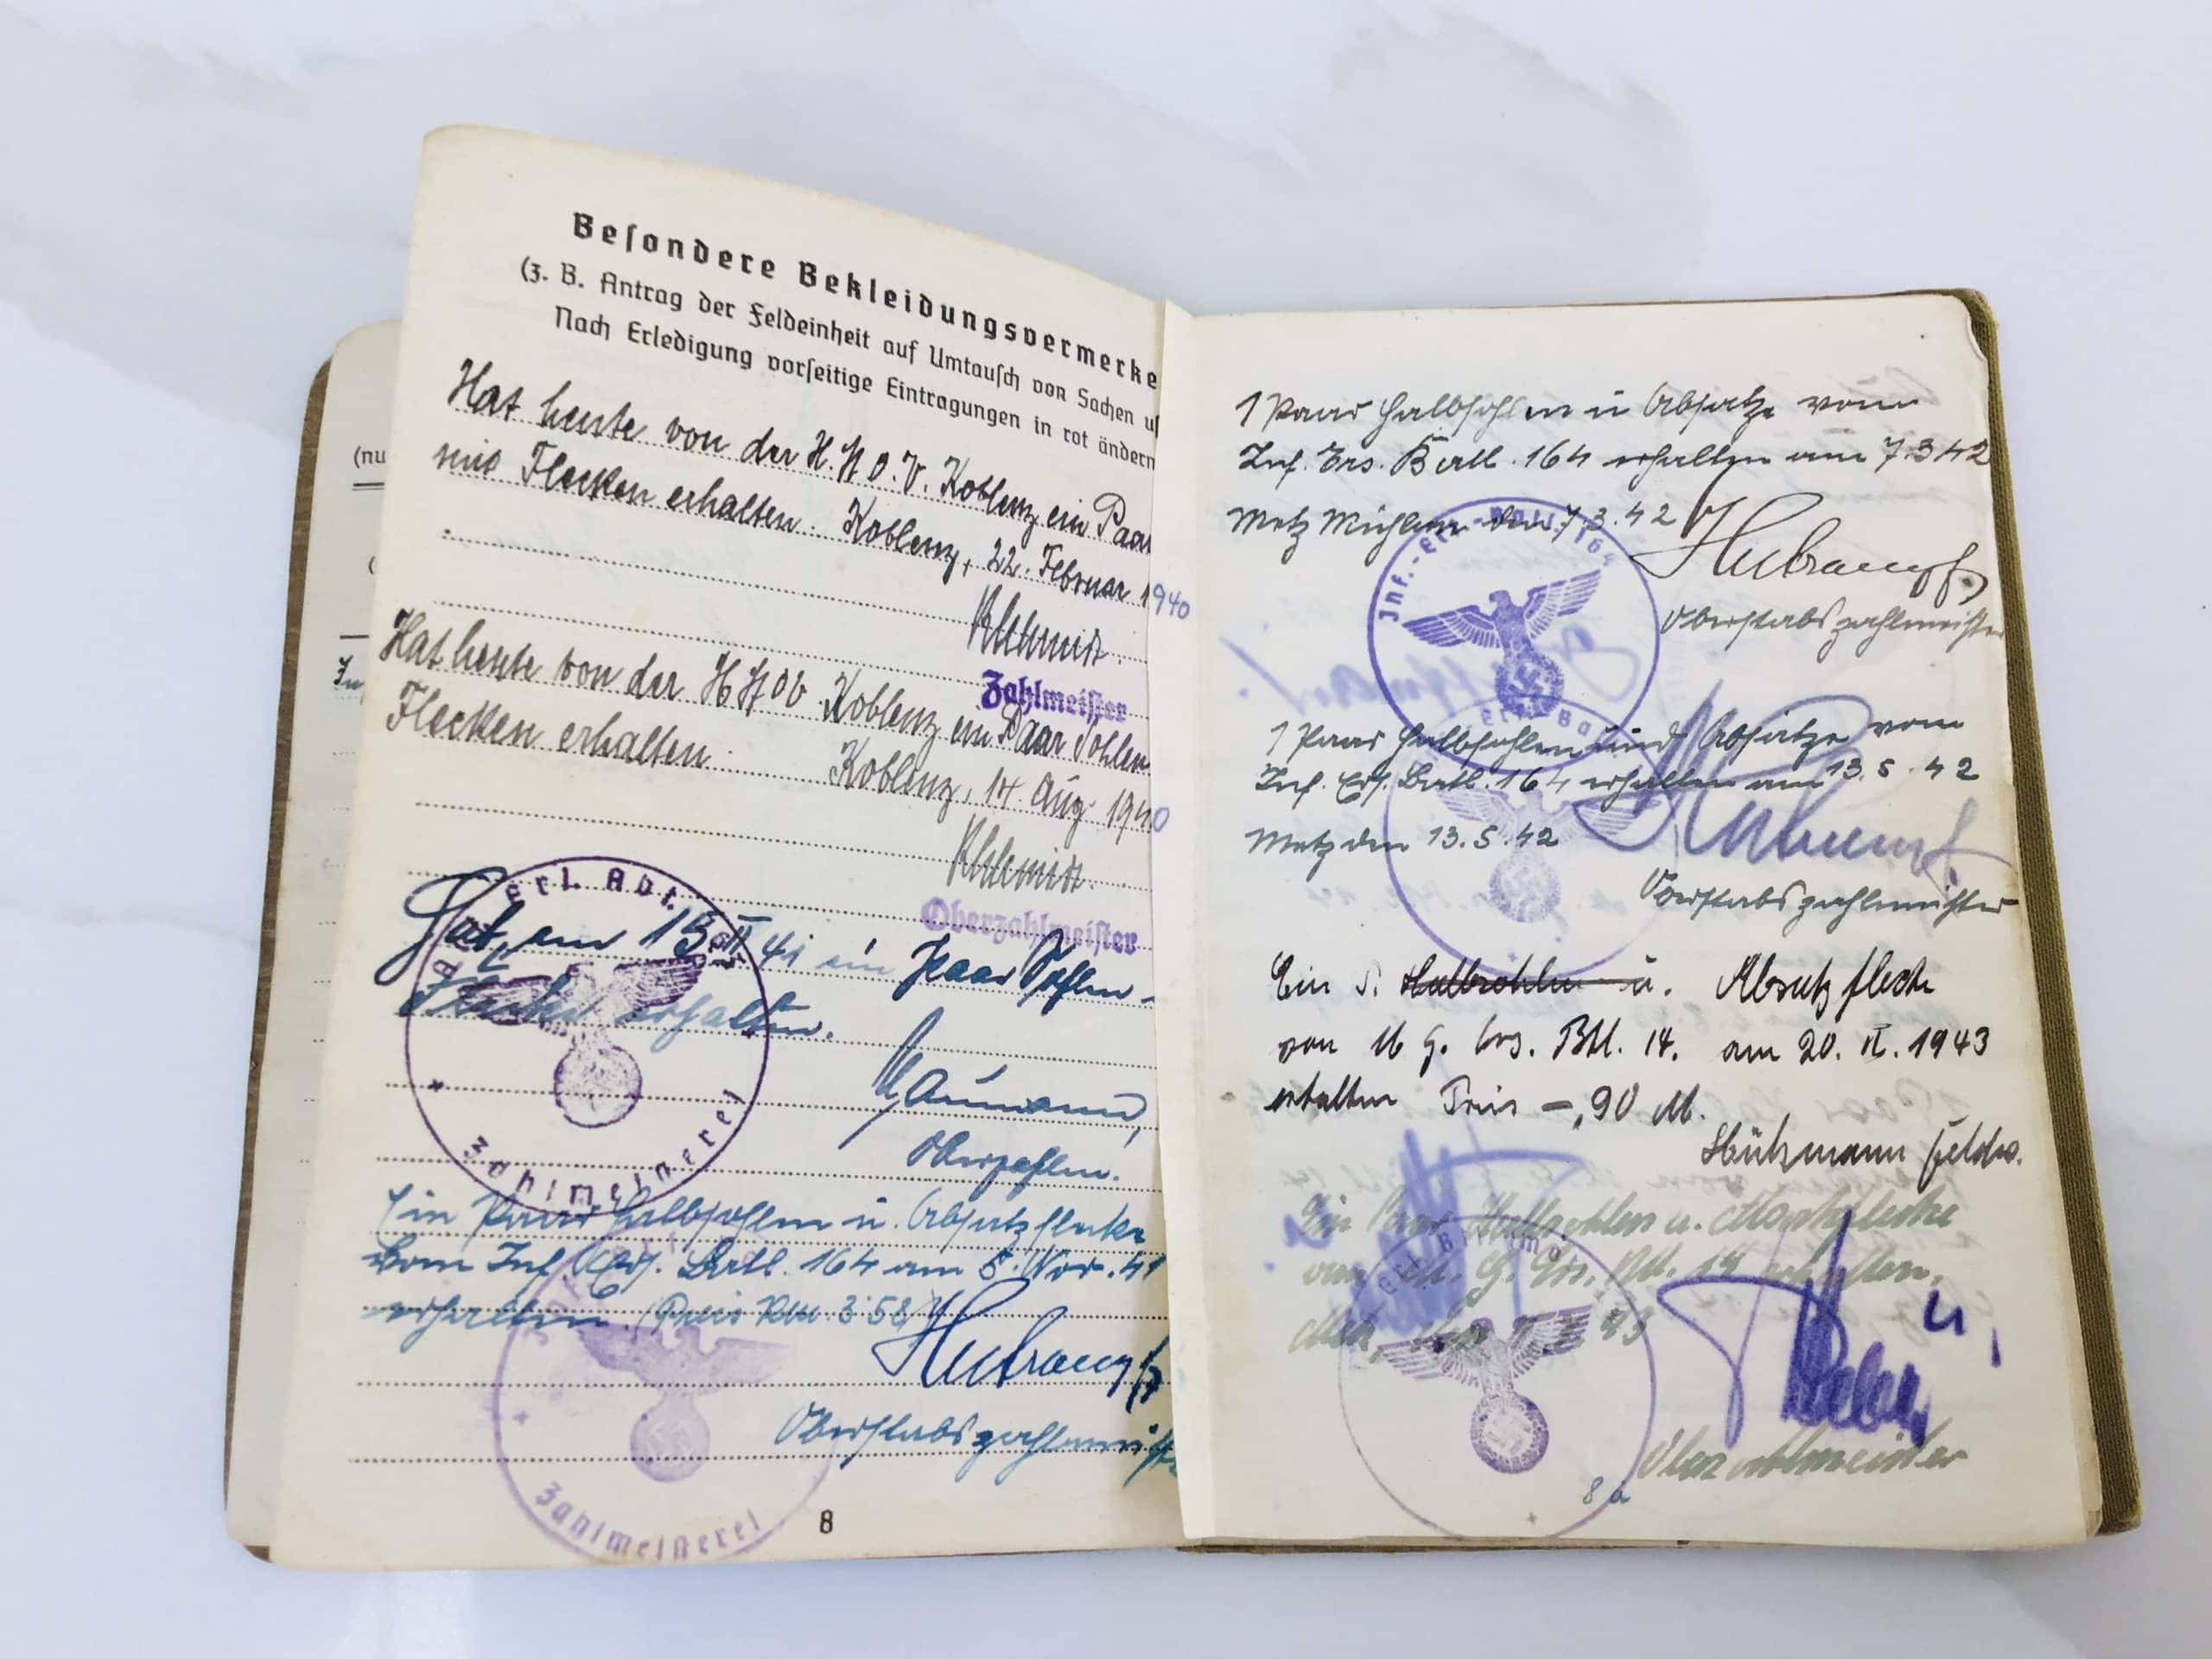 Besondere Bekleidungsvermerke
(z. B. Antrag der Feldeinheit auf Umtausch von Sachen u
Nach Erledigung vorseitige Eintragungen in rot ändern
Hat heute von der H.St.O.V. Koblenz ein Paar
Flecken erhalten. Koblenz, 22. Februar 1940
Zahlmeister
Hat heute von der HStOV Koblenz ein Paar Sohlen
Flecken erhalten.
Koblenz, 14. Aug. 1940
Oberzahlmeister
Hat am 15. II 41 ein Paar Sohlen-
Flecken erhalten.
Naumann
Oberzahlm.
Ers. Abt.
Zahlmeisterei
Ein Paar Halbsohlen u. Absatzflecke
vom Inf. Ers. Batl. 164 am 5. Nov. 41
erhalten. Preis RM 3.58
Oberstabszahlmeister
Zahlmeisterei
8
(nu
1 Paar Halbsohlen u Absätze vom
Inf. Ers. Batl. 164 erhalten am 7.3 42
Metz den 7.3.42
Oberstabszahlmeister
Inf.-Ers.-Batl. 164
1 Paar Halbsohlen und Absätze vom
Inf. Ers. Batl. 164 erhalten am 13.5.42
Metz den 13.5.42
Oberstabszahlmeister
Ein P. Halbsohlen u. Absatzflecke
von M. G. Ers. Btl. 14. am 20. II. 1943
erhalten Preis -,90 M.
Feldw.
Ein Paar Halbsohlen u. Absatzflecke
vom M. G. Ers. Btl. 14 erhalten.
Metz, 43
Oberzahlmeister
8 a